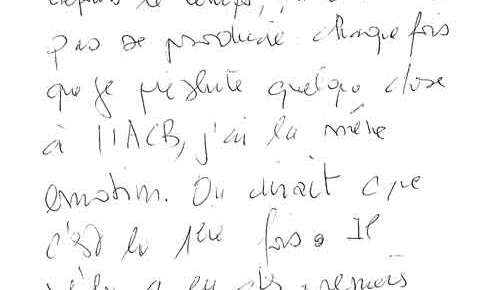 depuis le temps,
pas se produire. Chaque fois
que je présente quelque chose
à l'IACB, j'ai la même
émotion. On dirait que
c'est la 1ère fois. Il
a eu des premiers